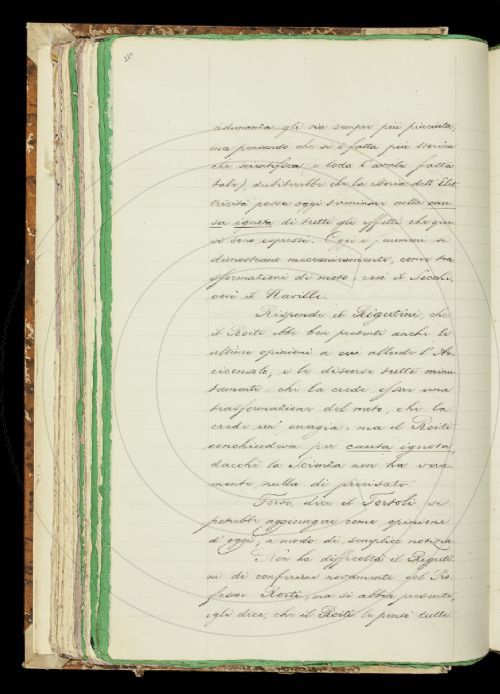 adunanza gli sia sempre più piaciuta,
ma pensando che si è fatta più storica
che scientifica, e loda l'averla fatta
tale), dubiterebbe che la storia dell'Elet-
tricità possa oggi terminare nella cau-
sa ignota di tutti gli effetti che qui
si sono espressi. Oggi i fenomeni si
dimostrano meccanicamente, come tra-
sformazioni di moto: così il Secchi,
così il Naville.
Risponde il Rigutini, che
il Roiti ebbe ben presenti anche le
ultime opinioni a cui allude l'Ar-
ciconsolo, e le discorse tutte minu-
tamente: chi la crede essere una
trasformazione del moto, chi la
crede un'energia: ma il Roiti
conchiudeva per causa ignota,
dacchè la Scienza non ha vera-
mente nulla di precisato.
Forse, dice il Tortoli, si
potrebbe aggiungere come opinione
d'oggi, a modo di semplice notizia.
Non ha difficoltà il Riguti-
ni di conferirne novamente col Pro-
fessor Roiti, ma si abbia presente,
egli dice, che il Roiti le pensò tutte